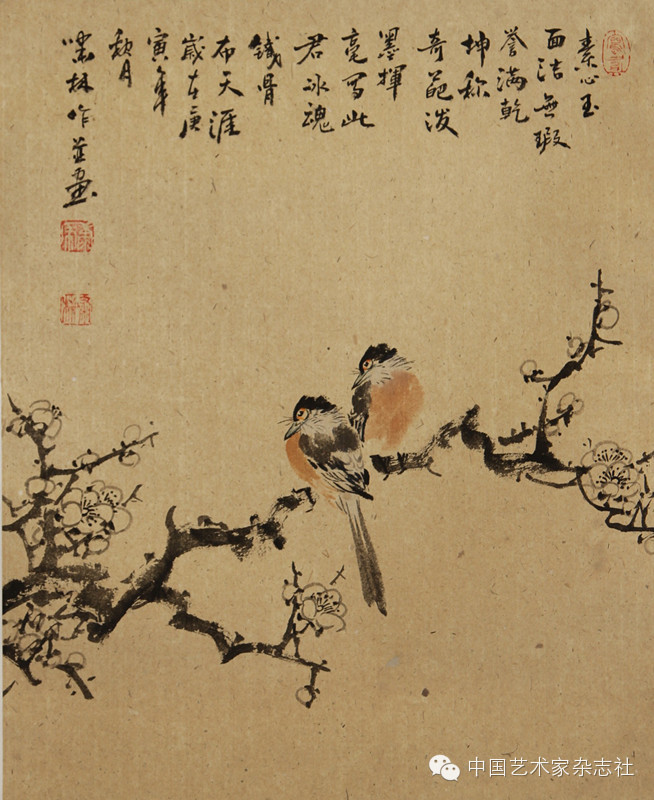 素心玉
面洁無瑕
誉满乾
坤称
奇葩泼
墨揮
毫写此
君冰魂
鐵骨
布天涯
歲在庚
寅年
秋月
啸林作並畫
中国艺术家杂志社